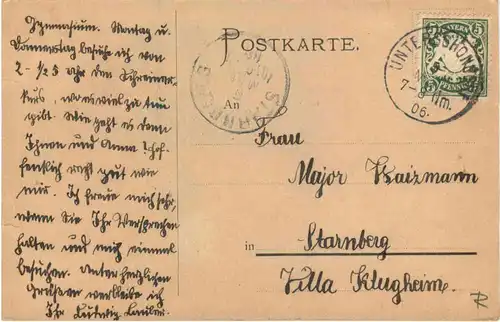 Gymnasium. Montag u.
Donnerstag besuche ich von
2-½5 Uhr den Schreiner-
kurs, wo es viel zu tun
gibt. Wie geht es denn
Ihnen und Anna? Hof-
fentlich recht gut wie
mir. Ich freue mich sehr,
wenn Sie Ihr Versprechen
halten und mich einmal
besuchen. Unter herzlichen
Grüßen verbleibe ich
Ihr Ludwig
POSTKARTE.
BAYERN
5 5
PFENNIG
7-8 Nm.
06.
STARNBERG
An
Frau
Major Waizmann
in Starnberg
Villa Klugheim.